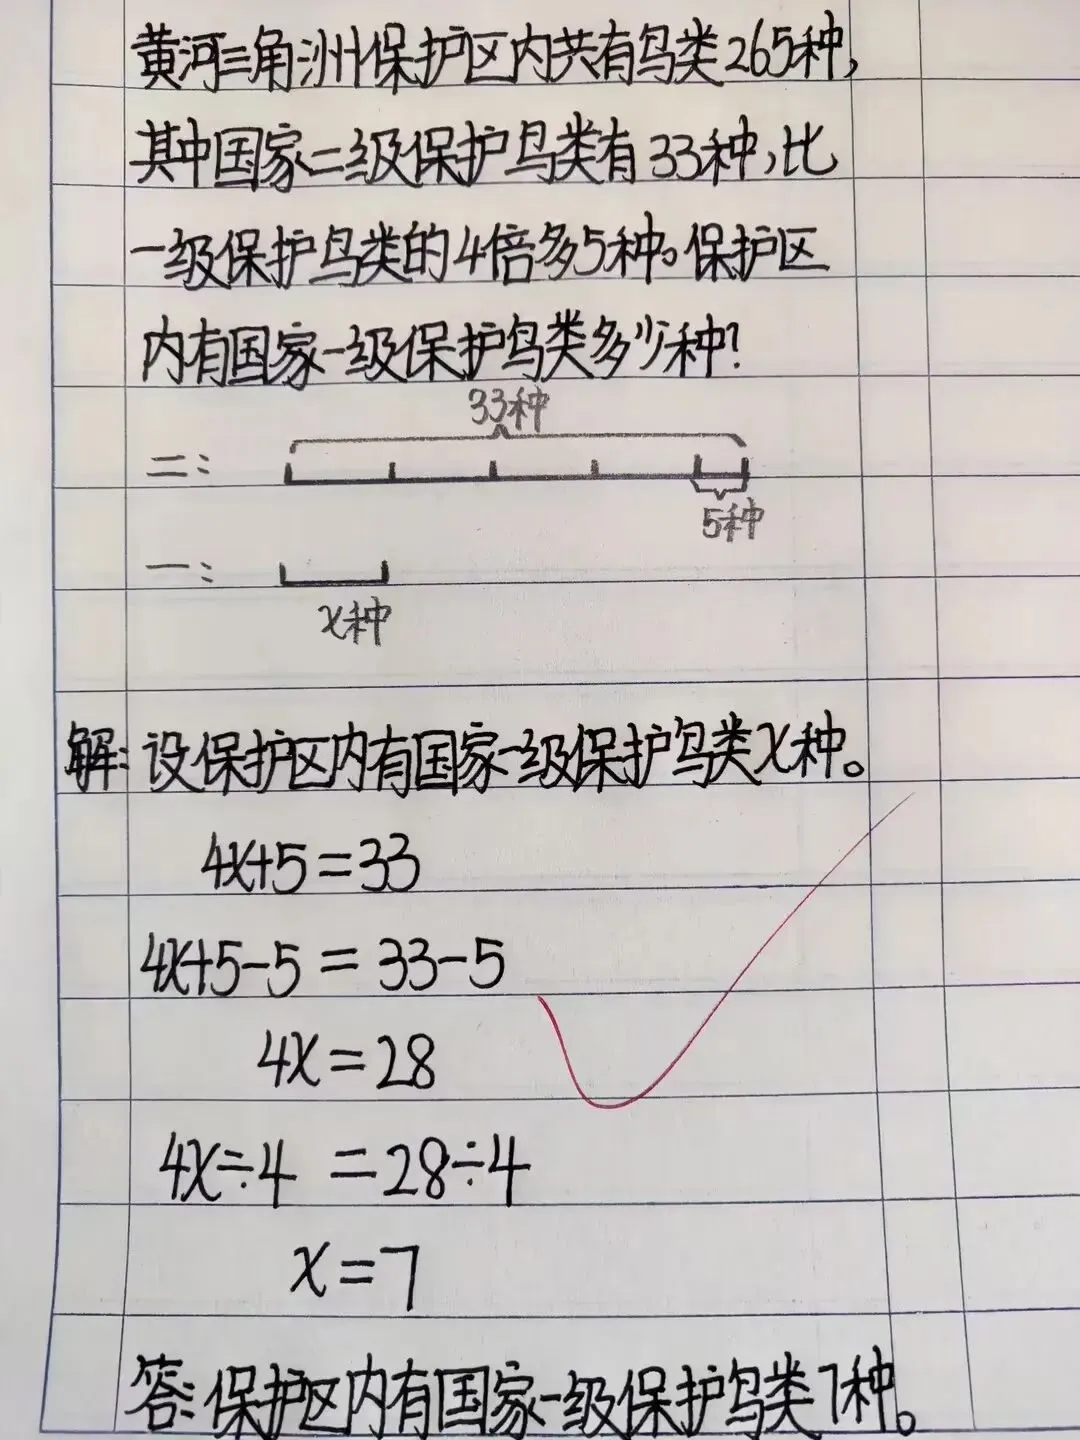 黄河三角洲保护区内共有鸟类265种,
其中国家二级保护鸟类有33种,比
一级保护鸟类的4倍多5种。保护区
内有国家一级保护鸟类多少种?
33种
二:
5种
一:
x种
解:设保护区内有国家一级保护鸟类x种。
4x+5=33
4x+5-5=33-5
4x=28
4x÷4=28÷4
x=7
答:保护区内有国家一级保护鸟类7种。